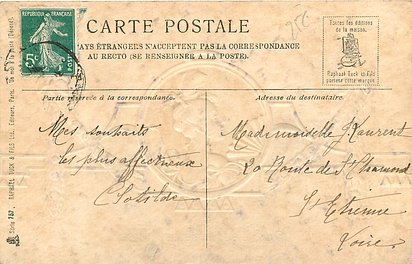 RÉPUBLIQUE FRANÇAISE
5c
POSTES
CARTE POSTALE
256
PAYS ÉTRANGERS N'ACCEPTENT PAS LA CORRESPONDANCE
AU RECTO (SE RENSEIGNER A LA POSTE).
Toutes les éditions
de la maison
Raphael Tuck & Fils
portent cette marque
Partie réservée à la correspondance.
Adresse du destinataire.
Mes souhaits
les plus affectueux
Clotilde
Mademoiselle J Laurent
20 Route de St Chamond
St Etienne
Loire
Série 757. RAPHAEL TUCK & FILS Ltd, Éditeurs, Paris.